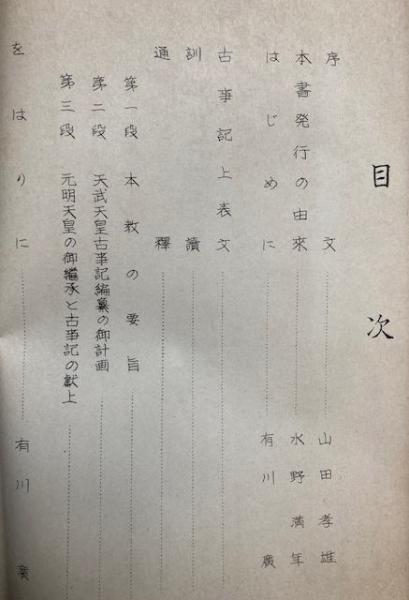 目次
序文……山田孝雄
本書発行の由來……水野満年
はじめに……有川廣
古事記上表文……
訓讀……
通釋……
第一段 本教の要旨……
第二段 天武天皇古事記編纂の御計画……
第三段 元明天皇の御繼承と古事記の献上……
をはりに……有川廣